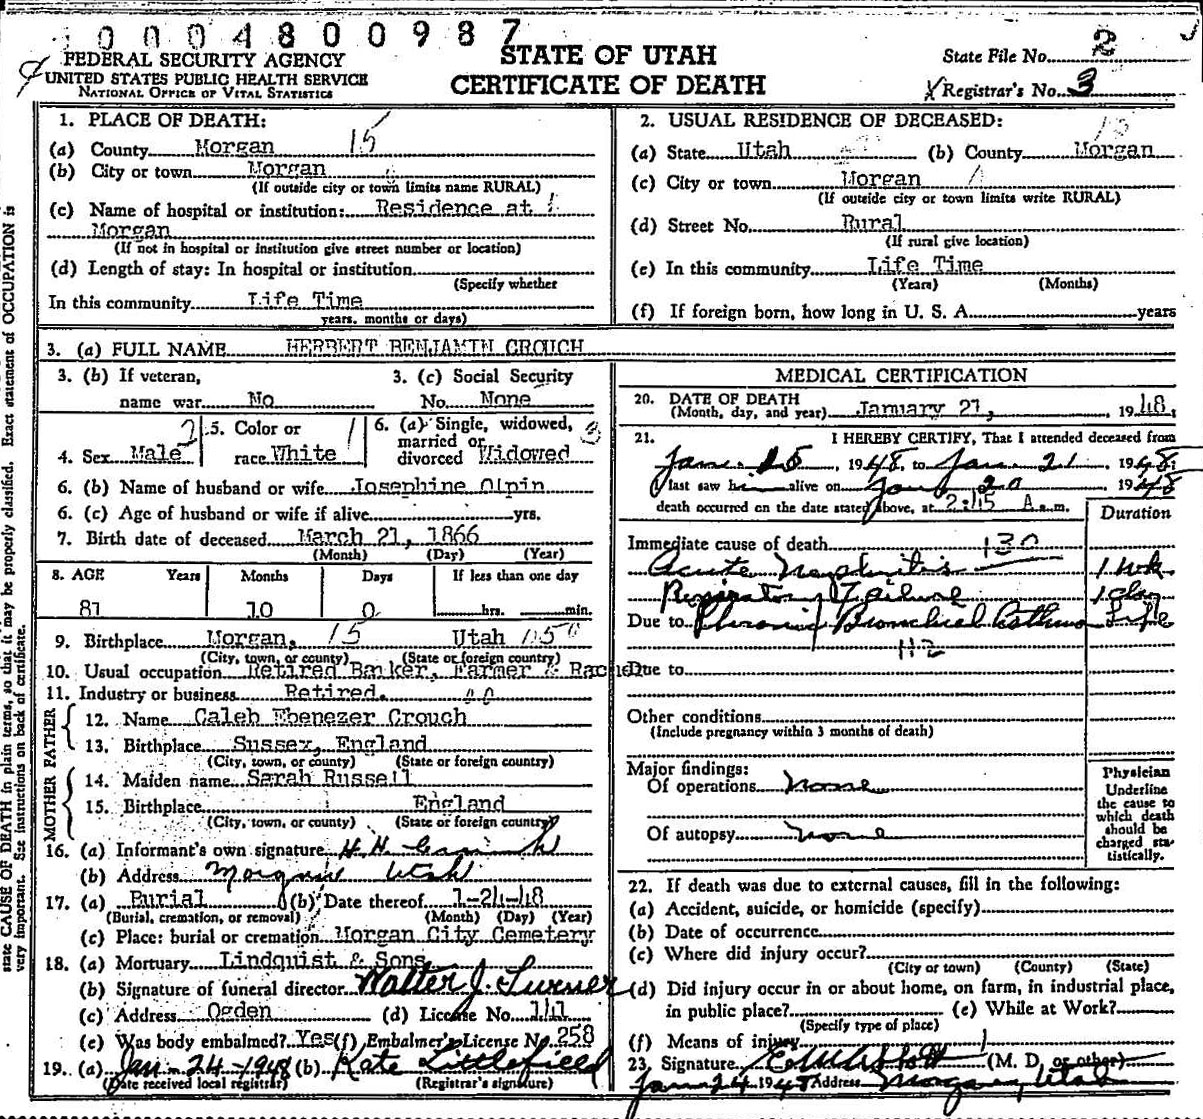 10004800987
FEDERAL SECURITY AGENCY
UNITED STATES PUBLIC HEALTH SERVICE
NATIONAL OFFICE OF VITAL STATISTICS
STATE OF UTAH
CERTIFICATE OF DEATH
State File No. 2
Registrar's No. 3
state CAUSE OF DEATH in plain terms, so that it may be properly classified. Exact statement of OCCUPATION is
very important. See instructions on back of certificate.
1. PLACE OF DEATH:
(a) County Morgan 15
(b) City or town Morgan
(If outside city or town limits name RURAL)
(c) Name of hospital or institution: Residence at
Morgan
(If not in hospital or institution give street number or location)
(d) Length of stay: In hospital or institution
(Specify whether
In this community Life Time
years, months or days)
2. USUAL RESIDENCE OF DECEASED:
(a) State Utah (b) County Morgan
(c) City or town Morgan
(If outside city or town limits write RURAL)
(d) Street No. Rural
(If rural give location)
(e) In this community Life Time
(Years) (Months)
(f) If foreign born, how long in U. S. A. years
3. (a) FULL NAME HERBERT BENJAMIN CROUCH
3. (b) If veteran,
name war No
3. (c) Social Security
No. None
4. Sex Male 2
5. Color or
race White 1
6. (a) Single, widowed,
married or
divorced Widowed 3
6. (b) Name of husband or wife Josephine Olpin
6. (c) Age of husband or wife if alive yrs.
7. Birth date of deceased March 21, 1866
(Month) (Day) (Year)
8. AGE Years Months Days If less than one day
81 10 0 hrs. min.
9. Birthplace Morgan, 15 Utah
(City, town, or county) (State or foreign country)
10. Usual occupation Retired Banker, Farmer &
11. Industry or business Retired.
FATHER
12. Name Caleb Ebenezer Crouch
13. Birthplace Sussex, England
(City, town, or county) (State or foreign country)
MOTHER
14. Maiden name Sarah Russell
15. Birthplace England
(City, town, or county) (State or foreign country)
16. (a) Informant's own signature H. H.
(b) Address Morgan Utah
17. (a) Burial (b) Date thereof 1-24-48
(Burial, cremation, or removal) (Month) (Day) (Year)
(c) Place: burial or cremation Morgan City Cemetery
18. (a) Mortuary Lindquist & Sons
(b) Signature of funeral director Walter J. Turner
(c) Address Ogden (d) License No.
(e) Was body embalmed? Yes (f) Embalmer's License No. 258
19. (a) Jan-24-1948 (b) Kate Littlefield
(Date received local registrar) (Registrar's signature)
MEDICAL CERTIFICATION
20. DATE OF DEATH
(Month, day, and year) January 21, 1948.
21. I HEREBY CERTIFY, That I attended deceased from
Jan. 15, 1948, to Jan. 21, 1948;
I last saw him alive on Jan 20 1948
death occurred on the date stated above, at 2:15 A.m.
Duration
Immediate cause of death 130
Acute Nephritis 1 wk.
Respiratory Failure 1 day
Due to Chronic Bronchial Asthma Life
112
Due to
Other conditions
(Include pregnancy within 3 months of death)
Major findings:
Of operations none
Of autopsy none
Physician
Underline
the cause to
which death
should be
charged sta-
tistically.
22. If death was due to external causes, fill in the following:
(a) Accident, suicide, or homicide (specify)
(b) Date of occurrence
(c) Where did injury occur?
(City or town) (County) (State)
(d) Did injury occur in or about home, on farm, in industrial place,
in public place? (e) While at Work?
(Specify type of place)
(f) Means of injury
23. Signature (M. D. or other)
Jan 24 1948 Address Morgan, Utah